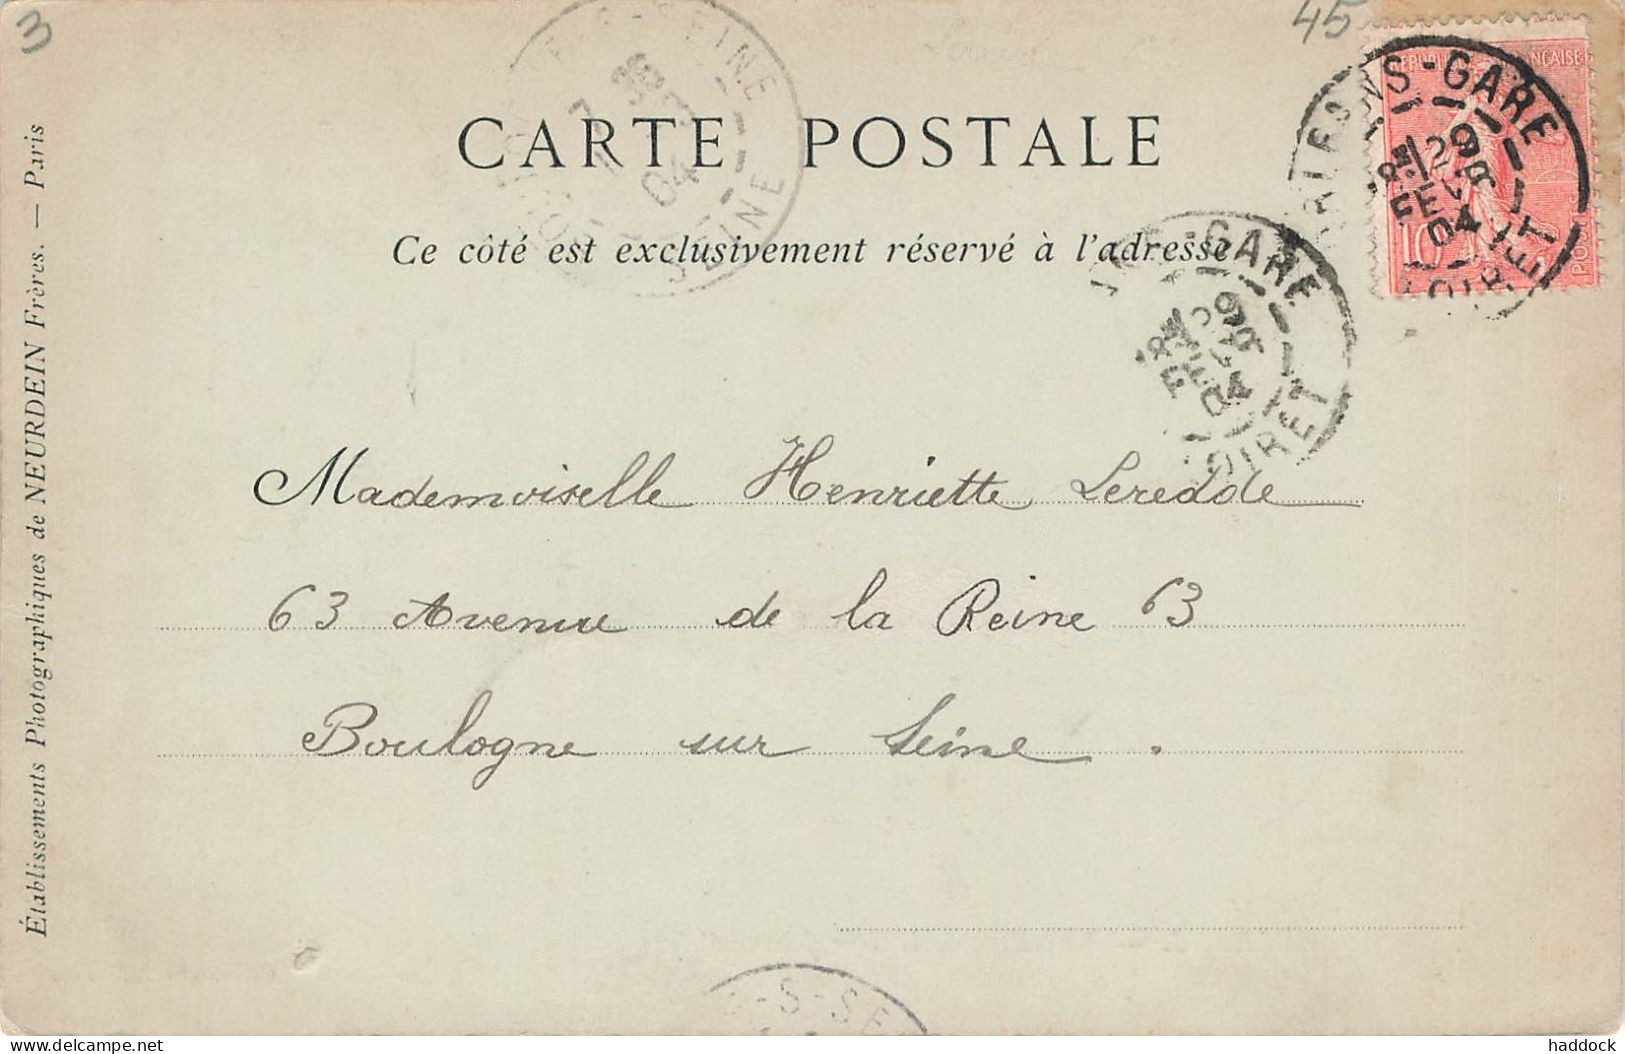 3
45
CARTE POSTALE
Ce côté est exclusivement réservé à l'adresse
RÉPUBLIQUE FRANÇAISE
10
-GARE
29
FEVR
04
LOIRET
-GARE
29
FEVR
04
LOIRET
S-SEINE
04
SEINE
Mademoiselle Henriette Leredde
63 Avenue de la Reine 63
Boulogne sur Seine.
-S-SE
Établissements Photographiques de NEURDEIN Frères. — Paris
haddock